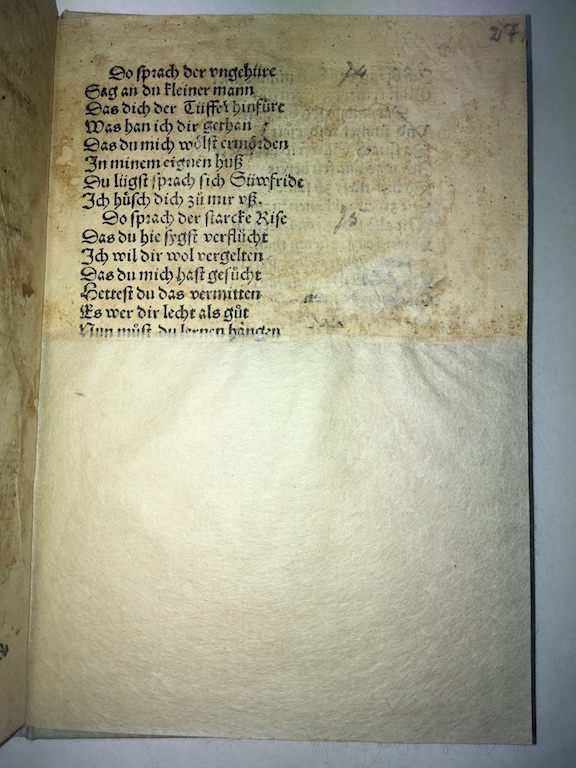 27
Do sprach der vngehüre 74
Sag an du kleiner mann
Das dich der Tüffel hinfüre
Was han ich dir gethan
Das du mich wölst ermörden
In minem eignen huß
Du lügst sprach sich Süwfride
Ich hüsch dich zů mir vß.
Do sprach der starcke Rise 75
Das du hie sygst verflůcht
Ich wil dir wol vergelten
Das du mich hast gesůcht
Hettest du das vermitten
Es wer dir lecht als gůt
Nun můst du lernen hangen